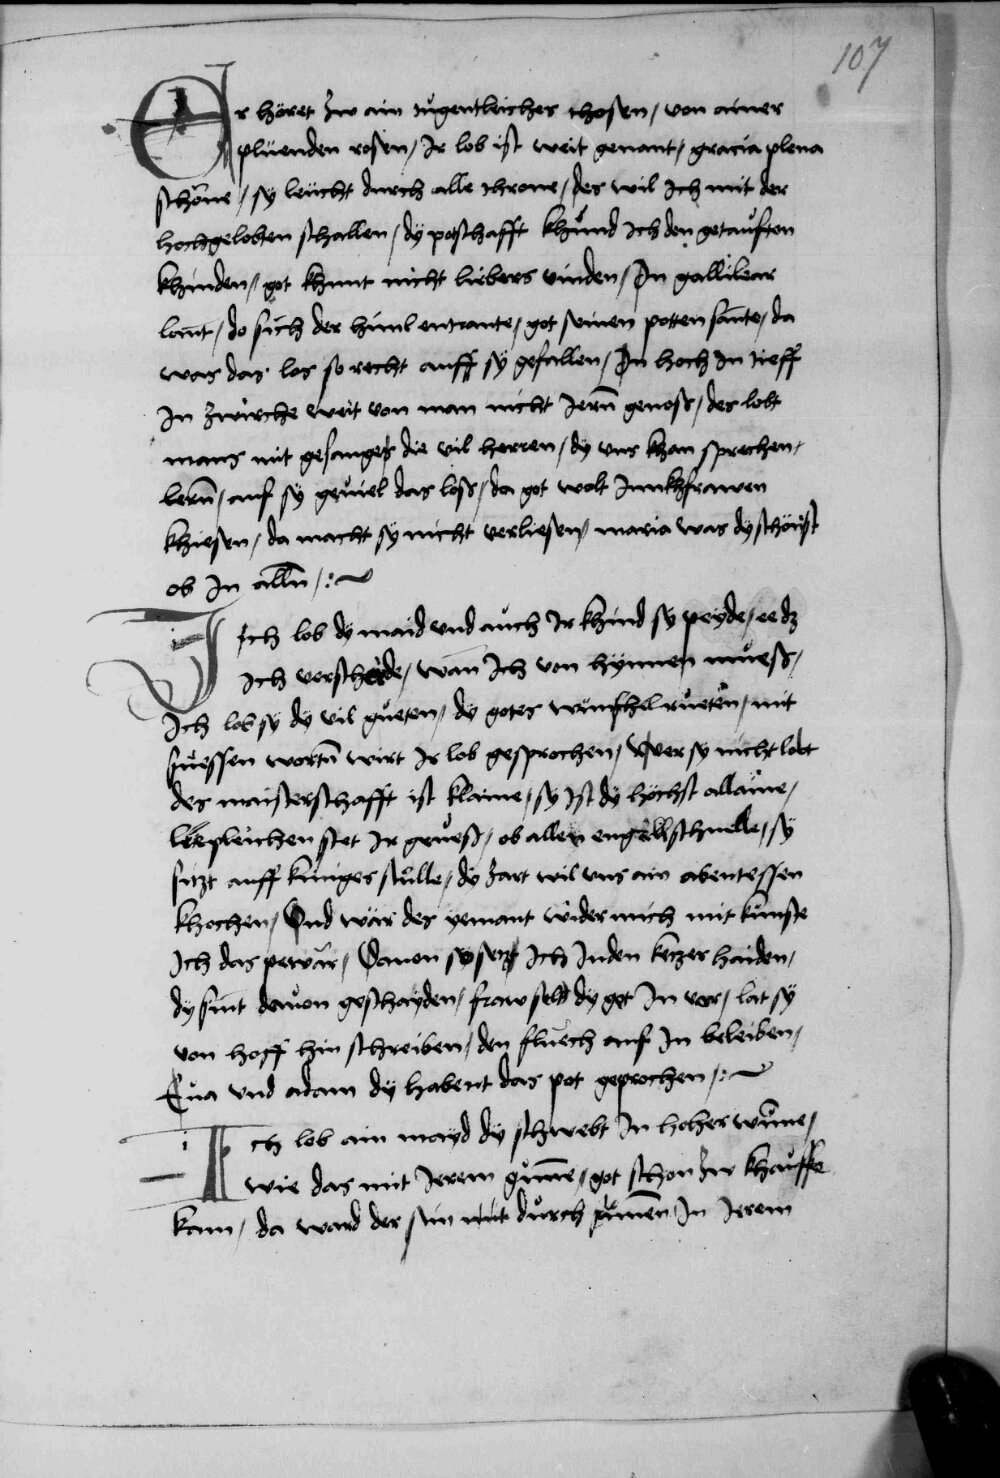 107
Er höret zw ain tugentleicher chosen / von ainer
plüenden rosen / Ir lob ist weit genant / gracia plena
schöne / sy leücht durch alle throne / des wil Ich mit der
hochgelobten schallen / dy potschafft khünd Ich den getaüften
khinden / got khunt nicht liebers vinden / In gallilear
lannt / do sich der himl entrante / got seinen potten sannte / da
was das los so recht auff sy gefallen / In hoch In tieff
In zwirche weit von man nicht Iern genoss / des lobt
mans mit gesanges die vil herren / dy vns khan sprechen
lern / auf sy geuiel das loss / da got wolt Junkhfrawen
khiesen / da macht sy nicht verliesen / maria was dy schönst
ob In alln /:~
Ich lob dy maid vnd auch Ir khind sy peyde / ee dz
Ich verscheide / wan Ich von hynnen muess /
Ich lob sy dy vil güeten / dy gotes wünschelrüeten / mit
süessen wortn wirt Ir lob gesprochen / Wer sy nicht lobt
des maisterschafft ist klaine / sy Ist dy höchst allaine /
pleichen stet Ir gruess / ob allen engell schnelle / sy
sitzt auff küniges stülle / dy zart wil vns ain abentessen
khochen / Vnd wär des yemant wider mich mit kunste
Ich das pewär / Dauon so setz Ich In den ketzer haiden /
dy sint dauon geschayden / fraw seld dy get In ver / lat sy
von hoff hin schreiben / den fluech auf In beleiben /
Eua vnd adam dy habent das pot geprochen /:~
Ich lob ain mayd dy schwebt In hoher wunne /
wie das mit Ierem gunne / got schon zw khauffe
kam / da ward der sun mit durch prinnen In Ierem